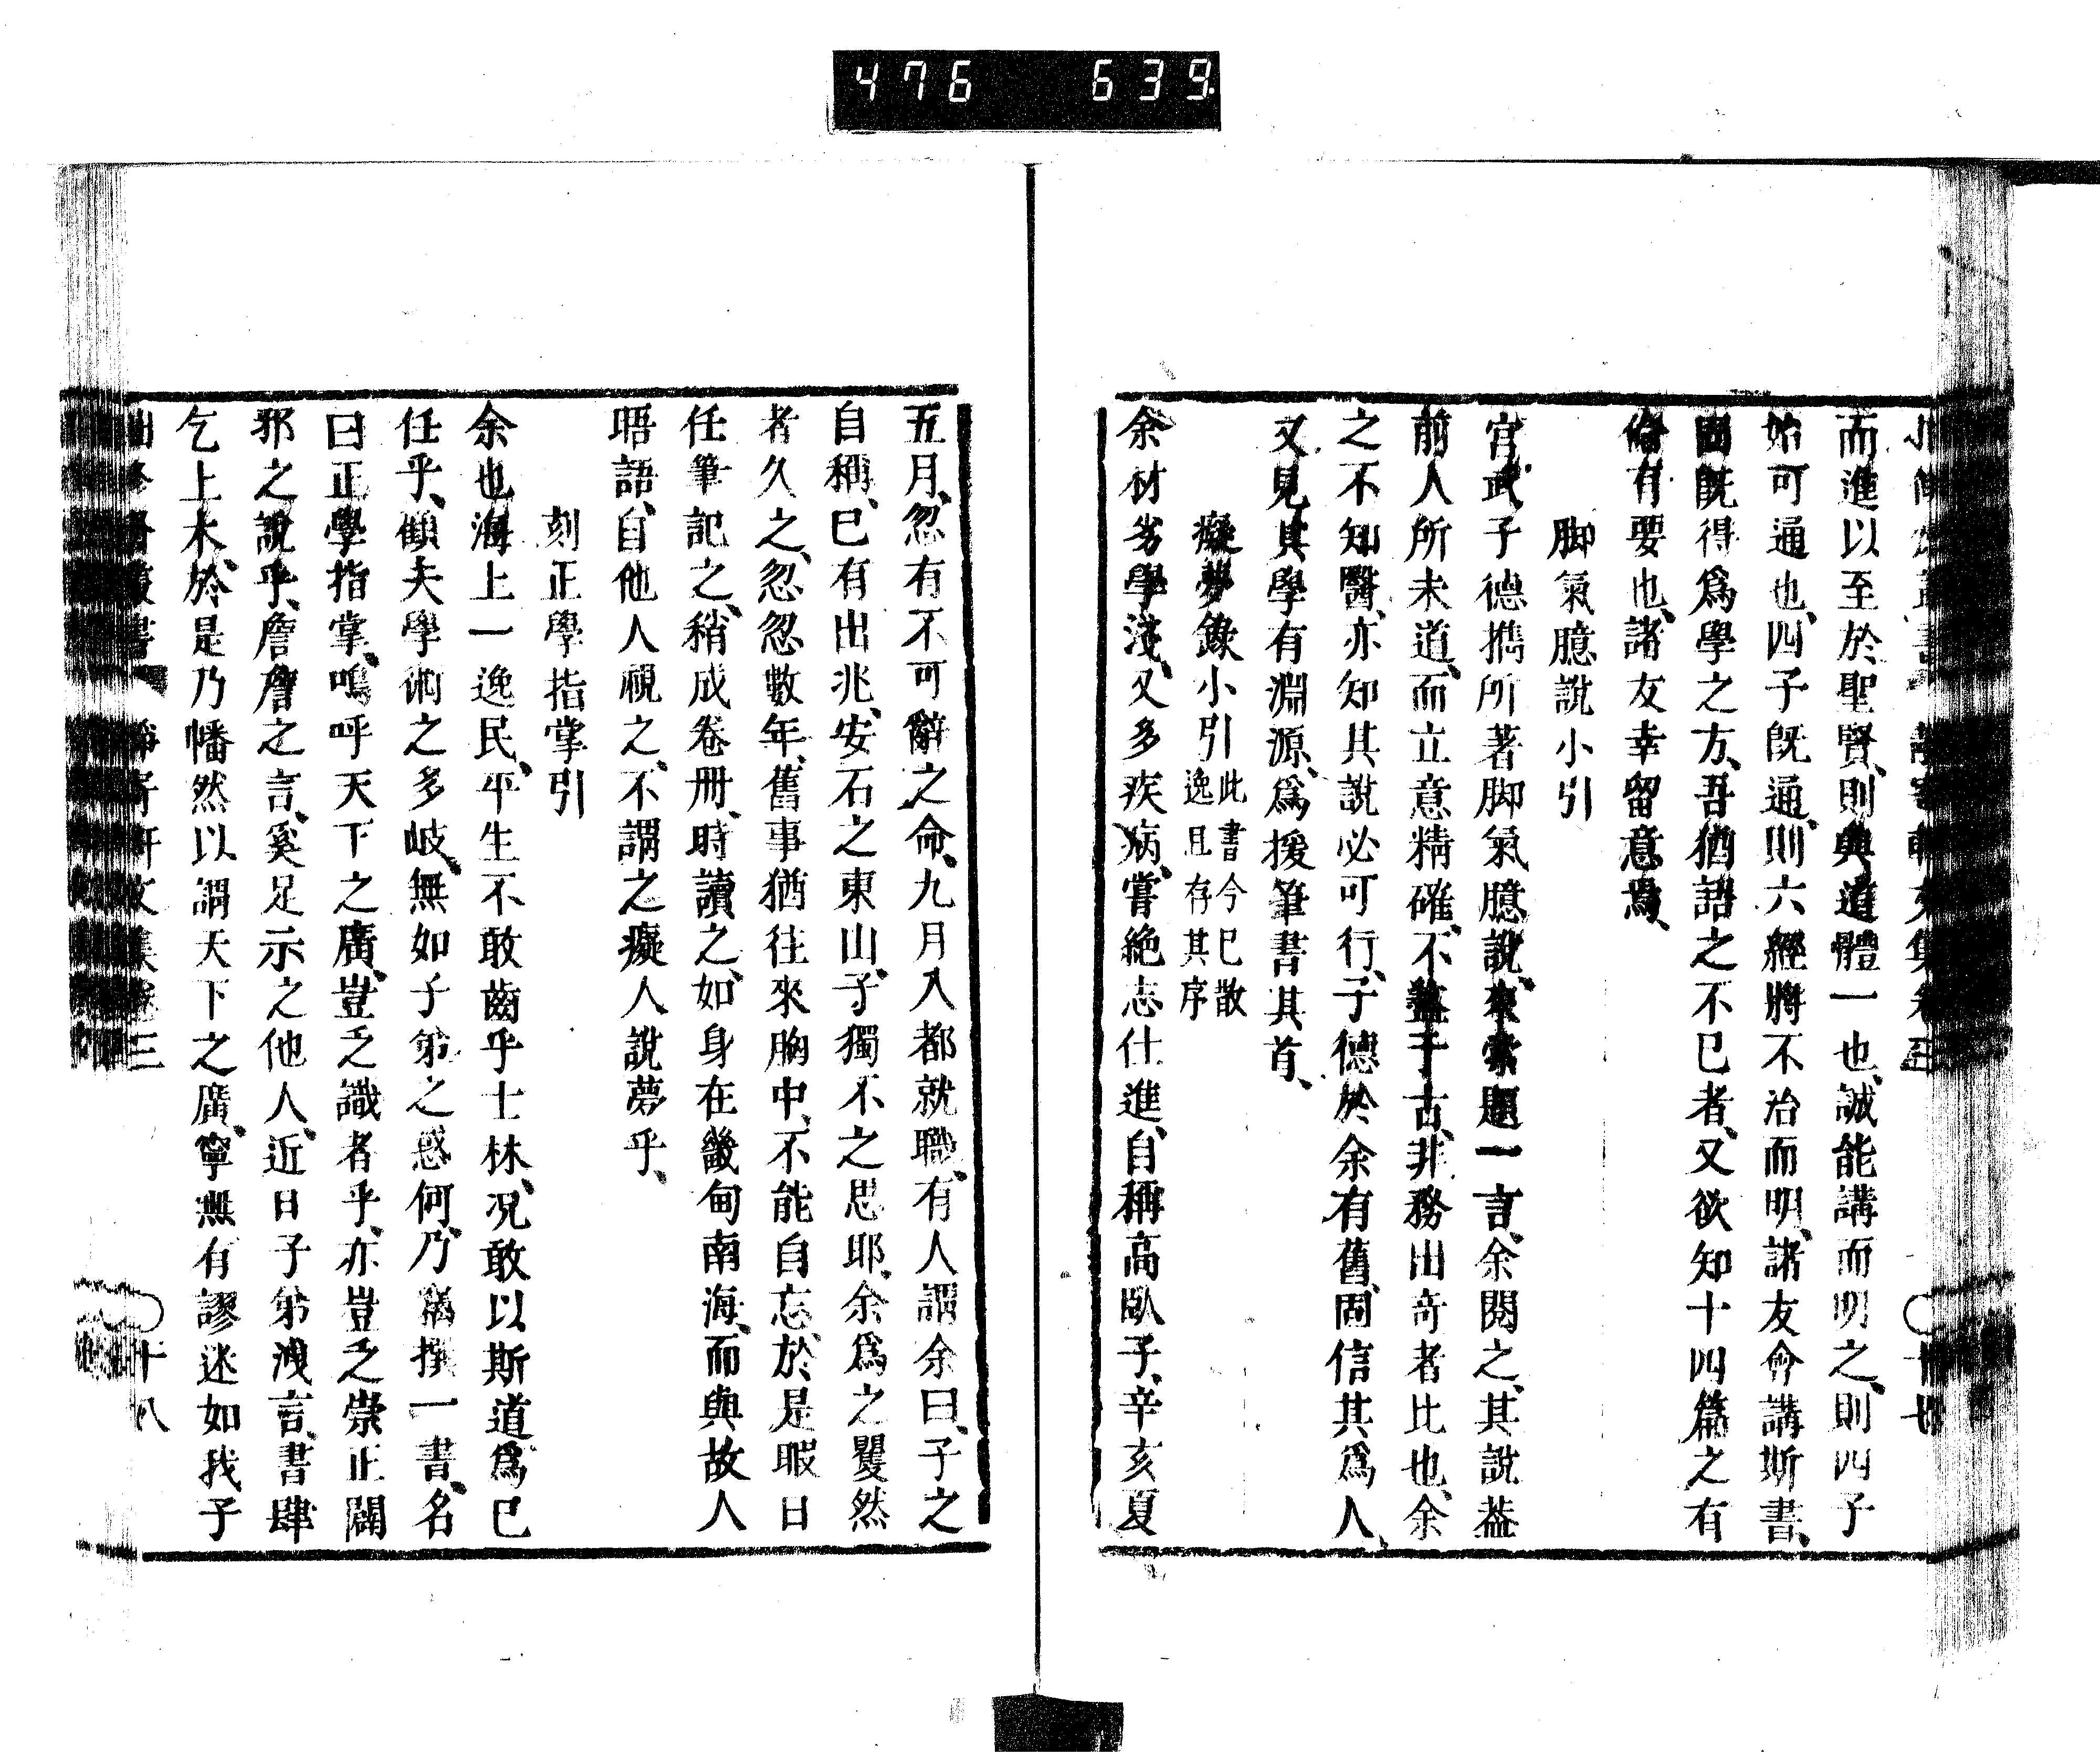 476 639
而進以至於聖賢、則與道體一也、誠能講而明之、則四子
始可通也、四子既通、則六經將不治而明、諸友會講斯書、
固既得爲學之方、吾猶語之不已者、又欲知十四篇之有
倫有要也、諸友幸留意焉、
脚氣臆說小引
官武子德携所著脚氣臆說、來索題一言、余閱之、其說蓋
前人所未道、而立意精確、不盭于古、非務出奇者比也、余
之不知醫、亦知其說必可行、子德於余有舊、固信其爲人、
又見其學有淵源、爲援筆書其首、
癡夢錄小引 此書今已散逸且存其序
余材劣學淺、又多疾病、嘗絶志仕進、自稱高臥子、辛亥夏
五月、忽有不可辭之命、九月入都就職、有人謂余曰、子之
自稱、已有出兆、安石之東山、子獨不之思耶、余爲之瞿然
者久之、忽忽數年、舊事猶往來胸中、不能自忘、於是暇日
任筆記之、稍成卷冊、時讀之、如身在畿甸南海、而與故人
晤語、自他人視之、不謂之癡人說夢乎、
刻正學指掌引
余也海上一逸民、平生不敢齒乎士林、況敢以斯道爲己
任乎、顧夫學術之多岐、無如子弟之惑何、乃竊撰一書、名
曰正學指掌、嗚呼天下之廣、豈乏識者乎、亦豈乏崇正闢
邪之說乎、詹詹之言、奚足示之他人、近日子弟洩言、書肆
乞上木、於是乃幡然以謂天下之廣、寧無有謬迷如我子
三
十八